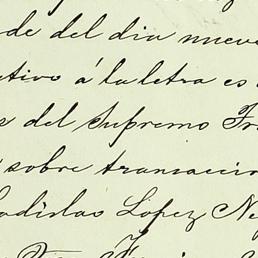 de del dia nueve
tivo á la letra es
s del Supremo Tri
sobre transaccion
Ladislao López Ne